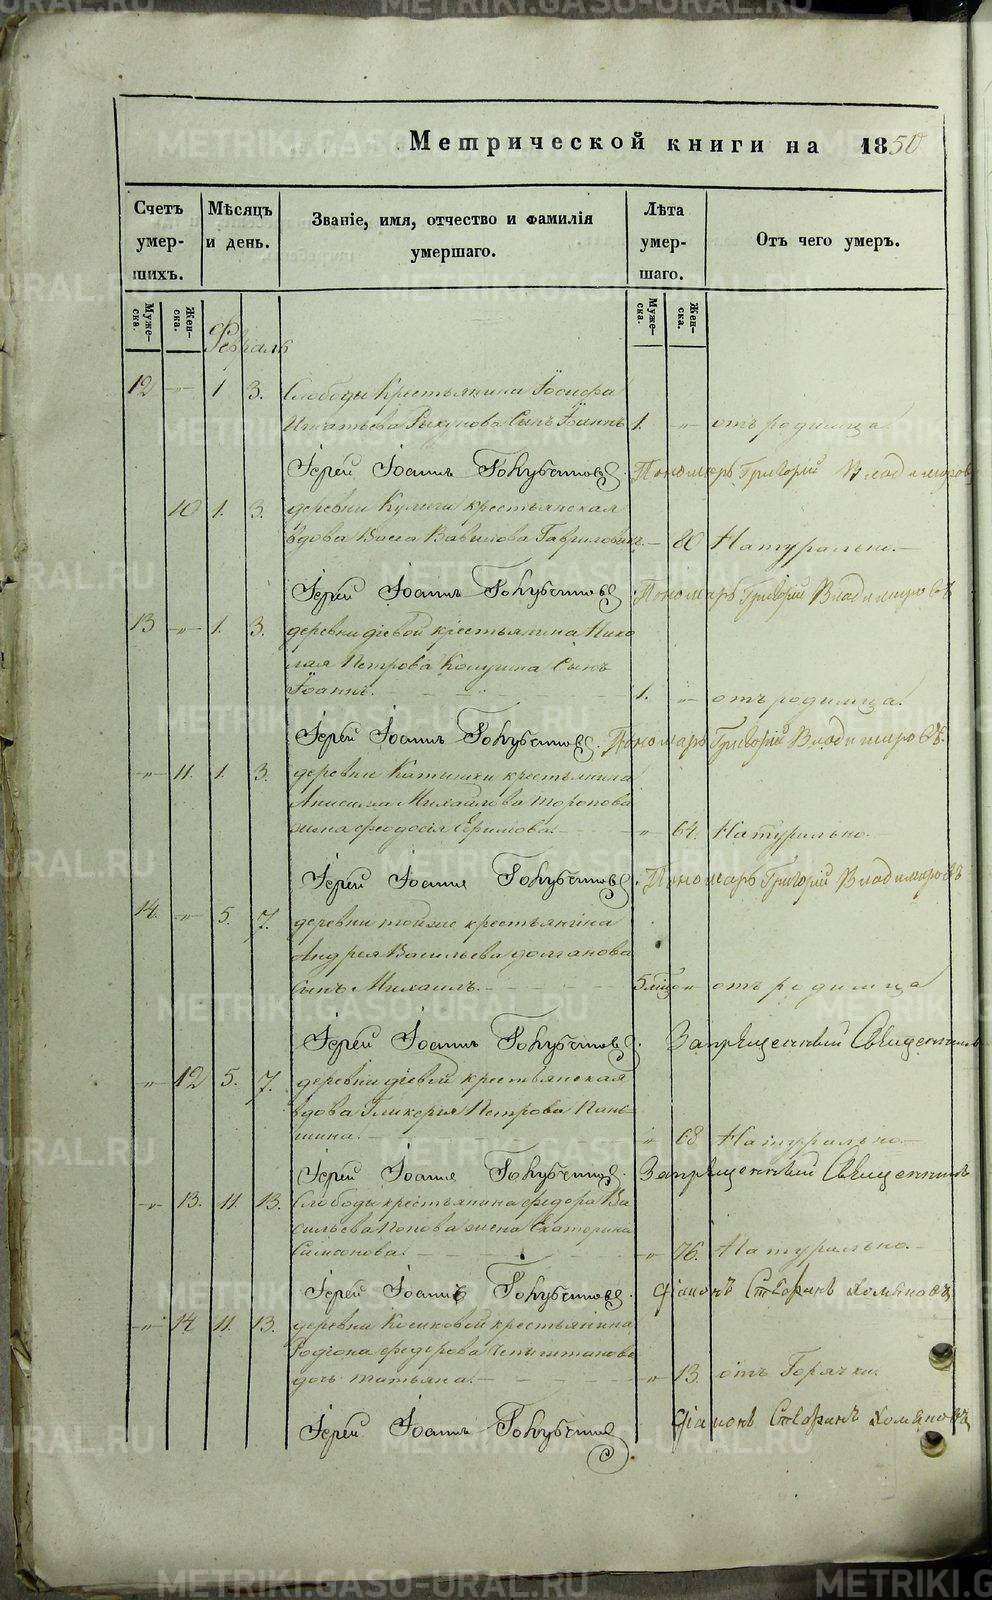 Метрической книги на 1850
Счетъ умер- шихъ.
Мѣсяцъ и день.
Званіе, имя, отчество и фамилія умершаго.
Лѣта умер- шаго.
Отъ чего умеръ.
Муже- ска.
Жен- ска.
Муже- ска.
Жен- ска.
Февраль
12 — „ — 1 3. Слободы крестьянина Іосифа
Игнатьева сынъ Іоаннъ 1. — „ — отъ родимца
Іерей Іоаннъ Голубчиковъ. Пономарь Григорій Владимировъ
10 1. 3. деревни Кулиги крестьянская
вдова Васса Вавилова Гавриловыхъ — 80 Натурально. —
Іерей Іоаннъ Голубчиковъ. Пономарь Григорій Владимировъ
13 — „ — 1. 3. деревни Діевой крестьянина Нико
лая Петрова Кокушина сынъ
Іоаннъ. — 1. „ отъ родимца.
Іерей Іоаннъ Голубчиковъ. Пономарь Григорій Владимировъ.
— „ — 11. 1. 3. деревни Катышки крестьянина
Анисима Михайлова Торопова
жена Феодосія Ефимова. — „ 64. Натурально. —
Іерей Іоаннъ Голубчиковъ. Пономарь Григорій Владимировъ
14. — „ — 5. 7. деревни крестьянина
Андрея Васильева Долганова
сынъ Михаилъ. — 5 мѣцо „ отъ родимца
Іерей Іоаннъ Голубчиковъ. Запрещенный Священникъ
— „ — 12 5. 7. деревни Діевой крестьянская
вдова Гликерія Петрова Пань-
шина. — „ 68 Натурально. —
Іерей Іоаннъ Голубчиковъ. Запрещенный Священникъ
— „ — 13. 11. 13. Слободы крестьянина Федора Ва
сильева Попова жена Екатерина
Симеонова. — „ 76. Натурально. —
Іерей Іоаннъ Голубчиковъ. Діаконъ Стефанъ Хомяковъ
— „ — 14 11. 13. деревни Косиковой крестьянина
Родіона Федорова
дочь Татьяна. — „ 13. отъ Горячки.
Іерей Іоаннъ Голубчиковъ Діаконъ Стефанъ Хомяковъ
METRIKI.GASO-URAL.RU